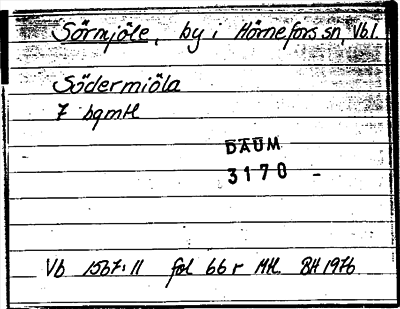 Sörmjöle, by i Hörnefors sn, Vb l.
Södermiöla
7 bgmtl
DAUM
3170 -
Vb 1567:11 fol 66 r Mtl. BH 1976